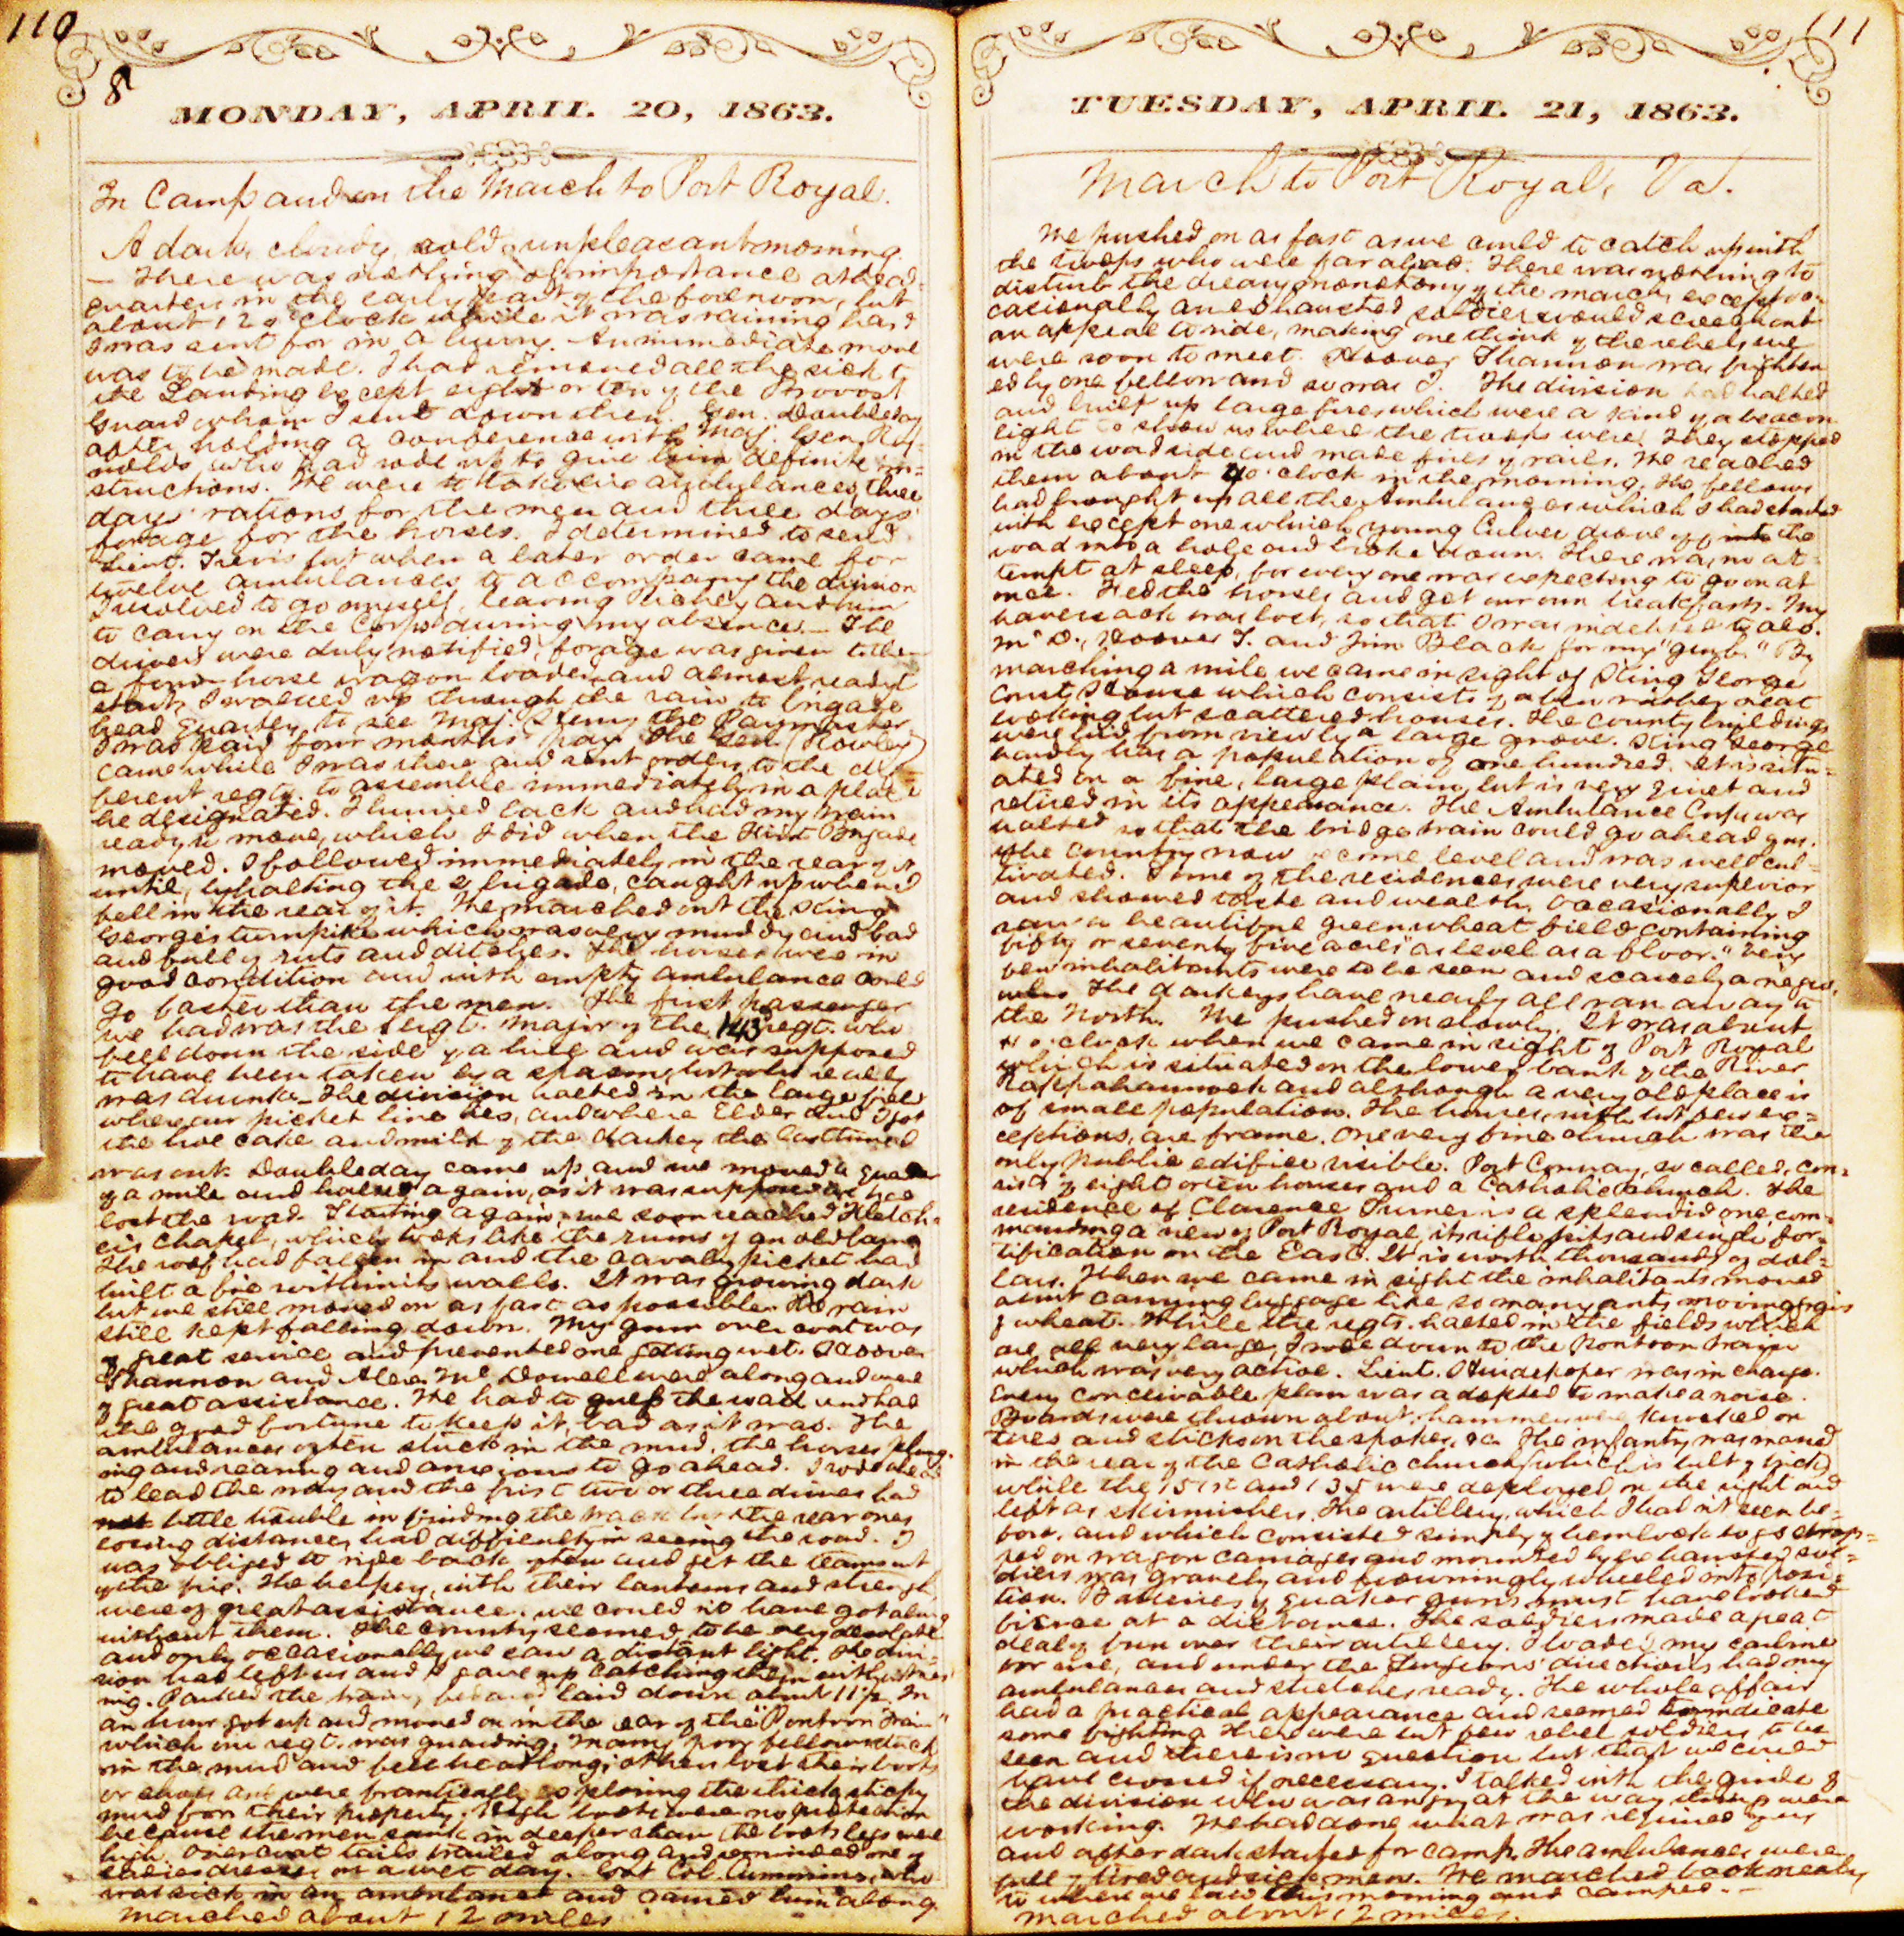 110
8
MONDAY, APRIL 20, 1863.
In Camp and on the March to Port Royal.
A dark, cloudy, cold, unpleasant morning.
— There was nothing of importance at head
quarters in the early part of the forenoon, but
about 12 o'clock while it was raining hard
I was sent for in a hurry. An immediate move
was to be made. I had removed all the sick to
the Landing except eight or ten of the Provost
Guard whom I sent down then. Gen. Doubleday
after holding a conference with Maj. Gen. Rey-
nolds, who had rode up to give him definite in-
structions. We were to take five ambulances, three
days' rations for the men and three days'
forage for the horses. I determined to send
Lieut. but when a later order came for
twelve ambulances to accompany the division
I resolved to go myself, leaving and him
to carry on the Corps during my absence. — The
drivers were duly notified, forage was given to them
a four horse wagon loaded and almost ready to
start, I walked up through the rain to Brigade
head quarters to see Maj. the Paymaster.
I was paid four months' pay. The Gen. (Rowley)
came while I was there and sent orders to the dif-
ferent regts. to assemble immediately in a place
he designated. I hurried back and had my train
ready to move, which I did when the First Brigade
moved. I followed immediately in the rear of it
until, by halting the 2d brigade, caught up when I
fell in the rear of it. We marched out the King
George's turnpike which was very muddy and bad
and full of ruts and ditches. The horses were in
good condition and with empty ambulances could
go faster than the men. The first passenger
we had was the Sergt. Major of the 143 regt. who
fell down the side of a hill and was supposed
to have been taken by a spasm, but who really
was drunk. — The division halted in the large field
where our picket line lies, and where Elder and I got
the hoe cake and milk of the darkey the last time I
was out. Doubleday came up and we moved a quarter
of a mile and halted again, as it was supposed we had
lost the road. Starting again, we soon reached Fletch-
er's Chapel, which looks like the ruins of an old barn.
The roof had fallen in and the cavalry picket had
built a fire within its walls. It was growing dark
but we still moved on as fast as possible. The rain
still kept falling down. My gum over coat was
of great service and prevented me getting wet. Hoover
Shannon and Alex. McDowell were along and were
of great assistance. We had to guess the road and had
the good fortune to keep it, bad as it was. The
ambulances often stuck in the mud, the horses plung-
ing and rearing and anxious to go ahead. I rode ahead
to lead the way and the first two or three drivers had
not little trouble in finding the track but the rear ones
losing distance, had difficulty in seeing the road. I
was obliged to ride back often and get the teams out
of the fix. The helpers, with their lanterns and strength,
were of great assistance. We could not have got along
without them. The country seemed to be very desolate
and only occasionally we saw a distant light. The divi-
sion had left us and I gave up catching them until morn
ing. Parked the train, fed and laid down about 11½. In
an hour got up and moved on in the rear of the "Pontoon Train"
which our regt. was guarding. Many poor fellows stuck
in the mud and fell headlong; others lost their boots
or shoes and were frantically exploring the thick sticky
mud for their property. High boots were no protection
because the men sunk in deeper than the boot legs were
high. Overcoat tails trailed along and reminded one of
ladies dresses on a wet day. Lieut. Col. Cummins, who
was sick in an ambulance and carried him along.
Marched about 12 miles.
111
TUESDAY, APRIL 21, 1863.
March to Port Royal, Va.
We pushed on as fast as we could to catch up with
the troops who were far ahead. There was nothing to
disturb the dreary monotony of the march, except oc-
casionally an exhausted soldier would screech out
an appeal to ride, making one think of the rebels we
were soon to meet. Hoover Shannon was frighten
ed by one fellow and so was I. The division had halted
and built up large fires which were a kind of a beacon
light to show us where the troops were. They stopped
in the woodside and made fires of rails. We reached
them about 4 o'clock in the morning. The fellows
had brought up all the Ambulances which I had started
with except one which young Culver drove off into the
road into a hole and broke down. There was no at-
tempt at sleep, for every one was expecting to go on at
once. Fed the horses and got our own breakfast. My
haversack was lost, so that I was indebted to Alex.
McD., Hoover S. and Jim Black for my "grub." By
marching a mile we came in sight of King George
Court House which consists of a few rather neat
looking but scattered houses. The county buildings
were hid from view by a large grove. King George
hardly has a population of one hundred. It is situ-
ated on a fine, large plain, but is very quiet and
retired in its appearance. The Ambulance Corps was
halted so that the bridge train could go ahead of us.
The country now became level and was well cul-
tivated. Some of the residences were very superior
and showed taste and wealth. Occasionally I
saw a beautiful green wheat field containing
fifty or seventy five acres "as level as a floor." Very
few inhabitants were to be seen and scarcely a negro.
The darkeys have nearly all ran away to
the North. We pushed on slowly. It was about
o'clock when we came in sight of Port Royal
which is situated on the lower bank of the River
Rappahannock and although a very old place is
of small population. The houses, with but few ex-
ceptions, are frame. One very fine church was the
only public edifice visible. Port Conway, so called, con-
sists of eight or ten houses and a Catholic Church. The
residence of Clarence Turner is a splendid one, com-
manding a view of Port Royal, its rifle pits and single for-
tification on the East. It is worth thousands of dol-
lars. When we came in sight the inhabitants moved
about carrying luggage like so many ants moving grains
of wheat. While the regts. halted in the fields which
are all very large, I rode down to the Pontoon train
which was very active. Lieut. Huidekoper was in charge.
Every conceivable plan was adopted to make a noise.
Boards were thrown about, hammers were knocked on
tires and sticks on the spokes, &c. The infantry was moved
in the rear of the Catholic church (which is built of brick)
while the 151st and 135 were deployed on the right and
left as skirmishers. The artillery, which I had n't seen be-
fore, and which consisted simply of hemlock logs strap-
ped on wagon carriages and mounted by exhausted sol-
diers was gravely and frowningly wheeled into posi-
tion. Batteries of quaker guns must have looked
fierce at a distance. The soldiers made a great
deal of fun over their artillery. I loaded my carbine
for use, and under the Surgeons' directions had my
ambulances and stretchers ready. The whole affair
had a practical appearance and seemed to indicate
some fighting. There were but few rebel soldiers to be
seen and there is no question but that we could
have crossed if necessary. I talked with the guide of
the division who was angry at the way things were
working. We had done what was required of us
and after dark started for camp. The ambulances were
full of tired and sick men. We marched back nearly
to where we laid this morning and camped. —
Marched about 12 miles.